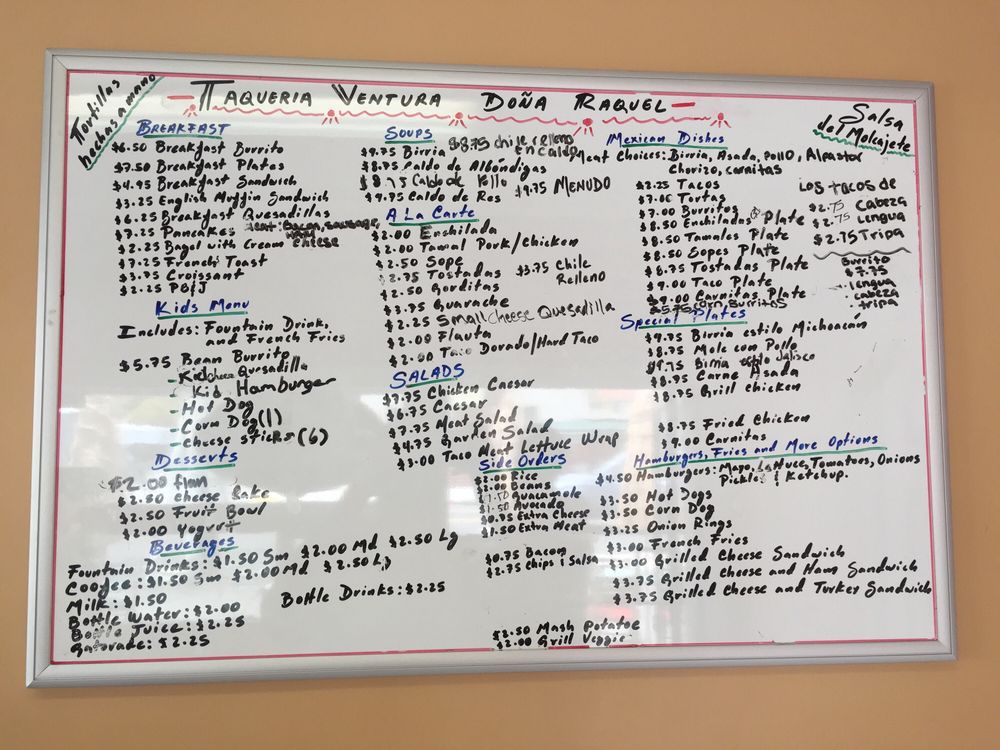 Tortillas
hechas a mano
TAQUERIA VENTURA DOÑA RAQUEL
Salsa
del Molcajete
BREAKFAST
$6.50 Breakfast Burrito
$7.50 Breakfast Plates
$4.95 Breakfast Sandwich
$3.25 English Muffin Sandwich
$6.25 Breakfast Quesadillas
$7.25 Pancakes Meat: Bacon, sausage,
HAM
$2.25 Bagel with Cream Cheese
$7.25 French Toast
$3.75 Croissant
$2.25 PB&J
Kids Menu
Includes: Fountain Drink,
and French Fries
$5.75 Bean Burrito
- Kid cheese Quesadilla
- Kid Hamburger
- Hot Dog
- Corn Dog (1)
- Cheese sticks (6)
Desserts
$2.00 flan
$2.50 Cheese Cake
$2.50 Fruit Bowl
$2.00 Yogurt
Beverages
Fountain Drinks: $1.50 Sm $2.00 Md $2.50 Lg
Coofee: $1.50 Sm $2.00 Md $2.50 Lg
Milk: $1.50
Bottle Water: $2.00
Bottle Juice: $2.25
Gatorade: $2.25
Bottle Drinks: $2.25
SOUPS
$8.75 chile relleno
EN CALDO
$9.75 Birria
$8.75 Caldo de Albóndigas
$8.75 Caldo de Pollo
$9.75 MENUDO
$9.75 Caldo de Res
A La Carte
$2.00 Enchilada
$2.00 Tamal Pork/Chicken
$2.50 Sope
$2.75 Tostadas
$3.75 Chile
Relleno
$2.50 Gorditas
$3.75 Guarache
$2.25 Small cheese Quesadilla
$2.00 Flauta
$2.00 Taco Dorado/Hard Taco
SALADS
$7.75 Chicken Caesar
$6.75 Caesar
$7.75 Meat Salad
$4.75 Garden Salad
$3.00 Taco Meat Lettuce Wrap
Side Orders
$2.00 Rice
$2.00 Beans
$1.50 Guacamole
$1.50 Avocado
$0.75 Extra Cheese
$1.50 Extra Meat
$0.75 Bacon
$2.75 Chips i Salsa
$2.50 Mash Potatoe
$2.00 Grill Veggie
Mexican Dishes
Meat Choices: Birria, Asada, pollo, Alpastor
Chorizo, carnitas
$2.25 Tacos
$7.00 Tortas
$7.00 Burritos
$8.50 Enchiladas Plate
$8.50 Tamales Plate
$8.50 Sopes Plate
$8.75 Tostadas Plate
$9.00 Taco Plate
$9.00 Carnitas Plate
$5.75 corn Burritos
LOS TACOS DE
$2.75 CABEZA
$2.75 Lengua
$2.75 Tripa
Burrito
$7.75
. lengua
. cabeza
. tripa
Special Plates
$9.75 Birria estilo Michoacán
$8.75 Mole con Pollo
$9.75 Birria estilo Jalisco
$8.75 Carne Asada
$8.75 Grill chicken
$8.75 Fried Chicken
$9.00 Carnitas
Hamburgers, Fries and More Options
$4.50 Hamburgers: Mayo, Lettuce, Tomatoes, Onions
Pickles i Ketchup.
$3.50 Hot Dogs
$3.50 Corn Dog
$3.25 Onion Rings
$3.00 French Fries
$3.00 Grilled Cheese Sandwich
$3.75 Grilled Cheese and Ham Sandwich
$3.75 Grilled Cheese and Turkey Sandwich